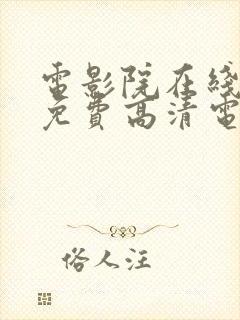 電影院在綫
免費高清電
俗人汪